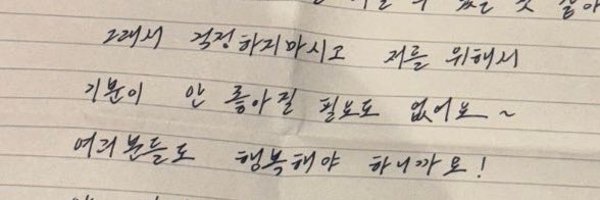 그래서 걱정하지마시고 저를 위해서
기분이 안 좋아질 필요도 없어요~
여러분들도 행복해야 하니까요!